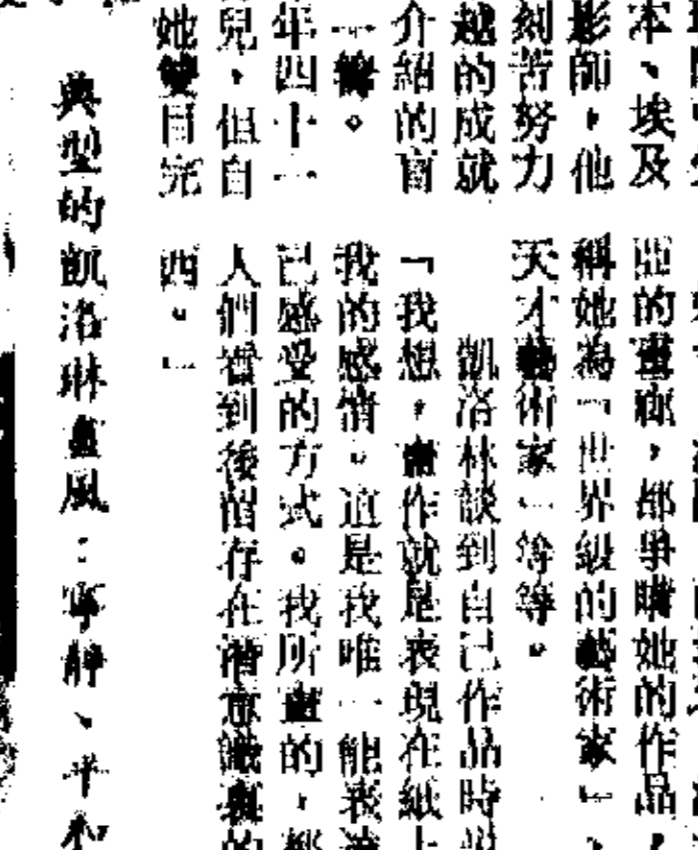 本、埃及
影師，他
刻苦努力
越的成就
介紹的窗
一輪。
年四十一
兒，但自
她雙目完
亞的畫廊，都爭購她的作品，
稱她為「世界級的藝術家」、
天才藝術家」等等。
凱洛林談到自己作品時說
「我想，畫作就是表現在紙上
我的感情。這是我唯一能表達
己感受的方式。我所畫的，都
人們看到後留存在潛意識裏的
西。」
典型的凱洛琳畫風：寧靜、平和